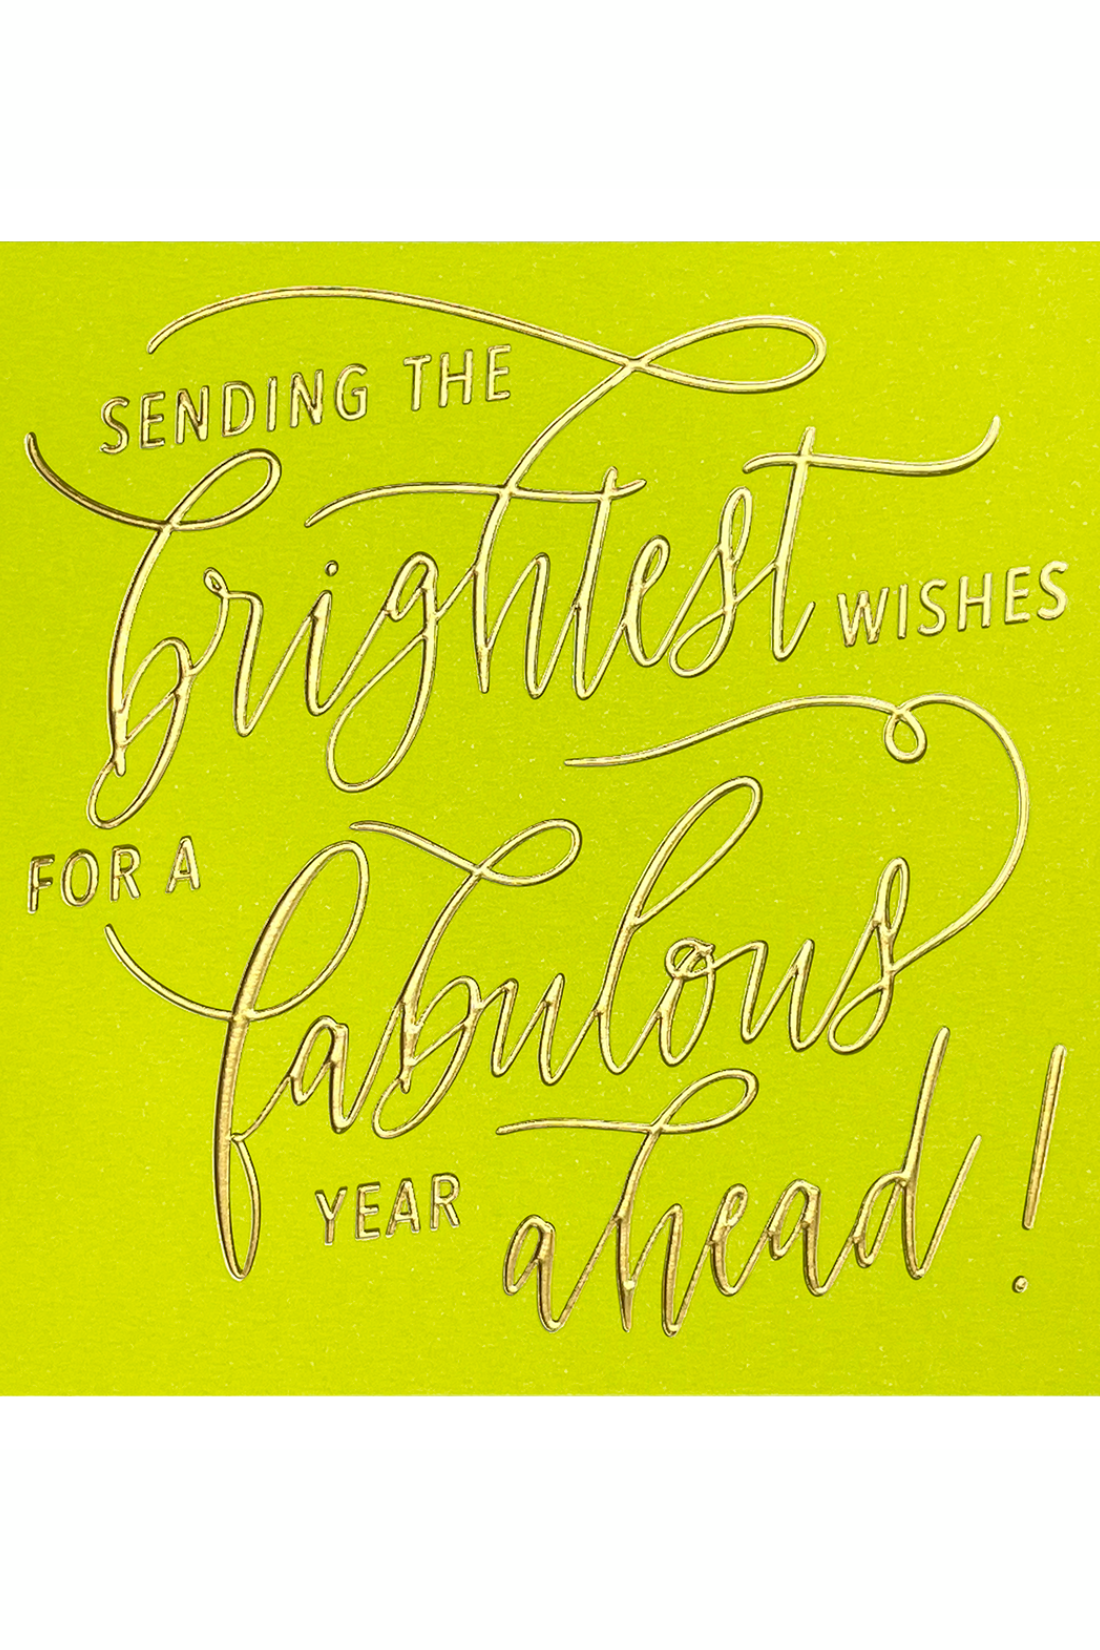 SENDING THE
brightest WISHES
FOR A
fabulous
YEAR ahead!